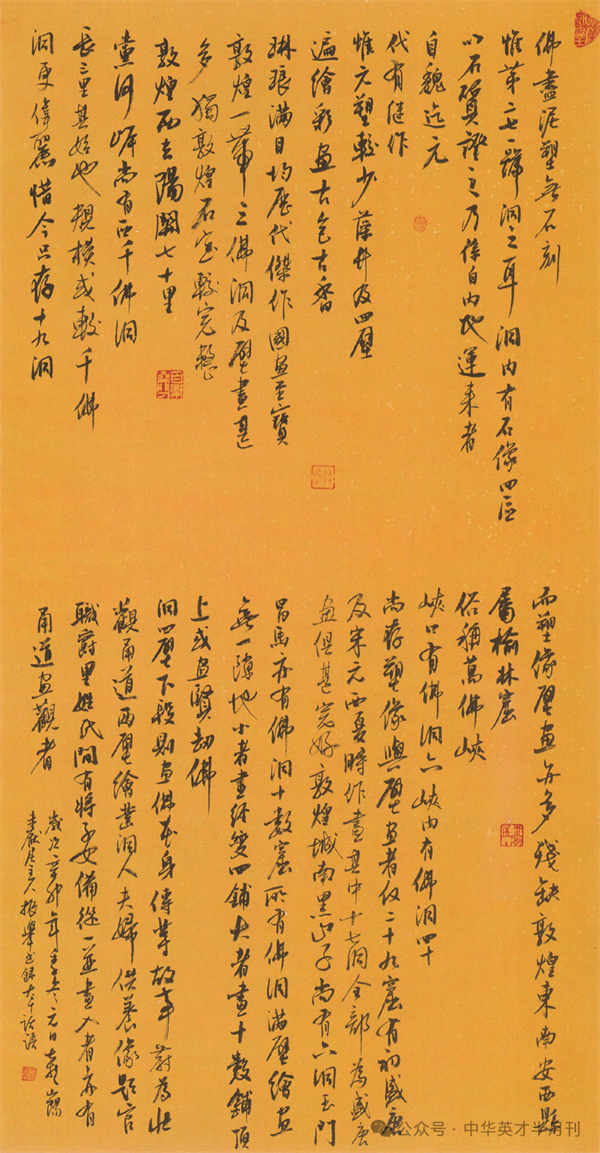 佛盡泥塑無石刻
惟第二七一號洞之耳洞内有石像四區
以石質證之乃係自内地運来者
自魏迄元
代有健作
惟元塑較少藻井及四壁
遍繪彩畫古色古香
琳琅滿目均歷代傑作國畫至寶
敦煌一帶之佛洞及壁畫甚
多獨敦煌石室較完整
敦煌西去陽關七十里
黨河崖尚有西千佛洞
長三里其始也規模或較千佛
洞更偉麗惜今只存十九洞
而塑像壁畫亦多殘缺敦煌東南安西縣
屬榆林窟
俗稱萬佛峽
峽口有佛洞六峽内有佛洞四十
尚存塑像與壁畫者仅二十九窟有初盛唐
及宋元西夏時作畫其中十七洞全部為盛唐
畫俱甚完好敦煌城南黑山子尚有六洞玉門
昌馬亦有佛洞十數窟所有佛洞滿壁繪畫
無一隙地小者畫經變四鋪大者畫十数鋪頂
上或畫賢劫佛
洞四壁下段則畫佛本身傳等故事蔚為壯
觀甬道兩壁繪鑿洞人夫婦供養像題官
職爵里姓氏間有將子女備從一並畫入者亦有
甬道画觀者
歲次辛卯年季冬元日
振舉書錄大千話語
公众号·中华英才半月刊